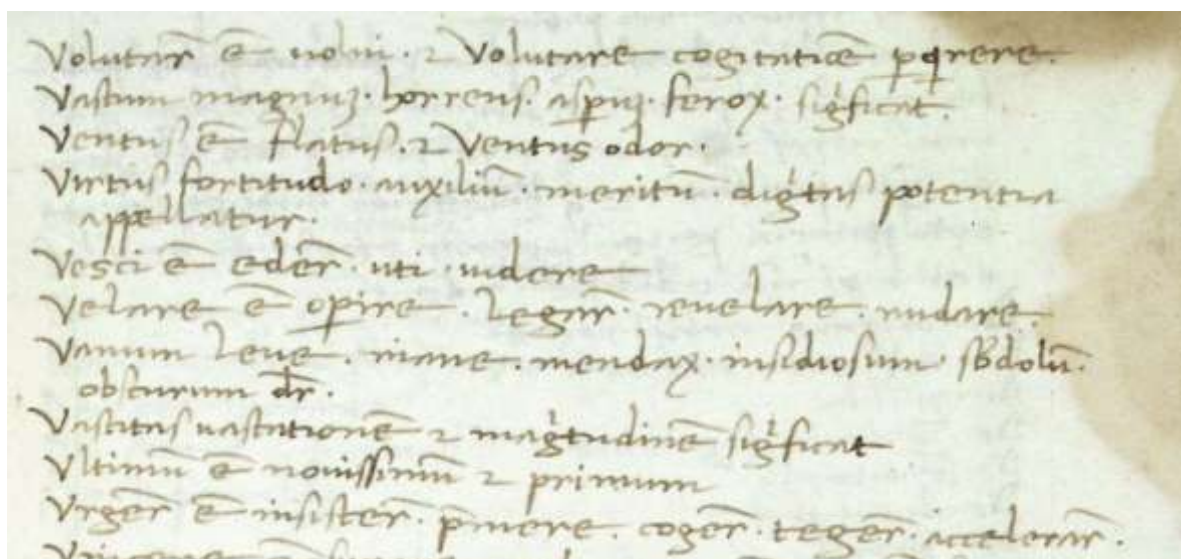 Volutar̄ ē uolui · ⁊ Volutare cogitatiōē ꝑq̄rere.
Vastum magnuꝫ · horrens · asꝑuꝫ · ferox · sigͥficat.
Ventus ē flatus · ⁊ Ventus odor ·
Virtus fortitudo · auxiliū · meritū · digͥtas potentia
appellatur ·
Vesci ē eder̄ · uti · uidere
Velare ē oꝑire · legar̄ · reuelare · nudare ·
Vanum leue · inane · mendax · insidiosum · sb̄dolū ·
obscurum dr̄ ·
Vastitas uastationē ⁊ magͥtudinē sigͥficat
Vltimū ē nouissimū ⁊ primum
Vrger̄ ē insister̄ · p̄mere · coger̄ · teger̄ · accelerar̄ ·